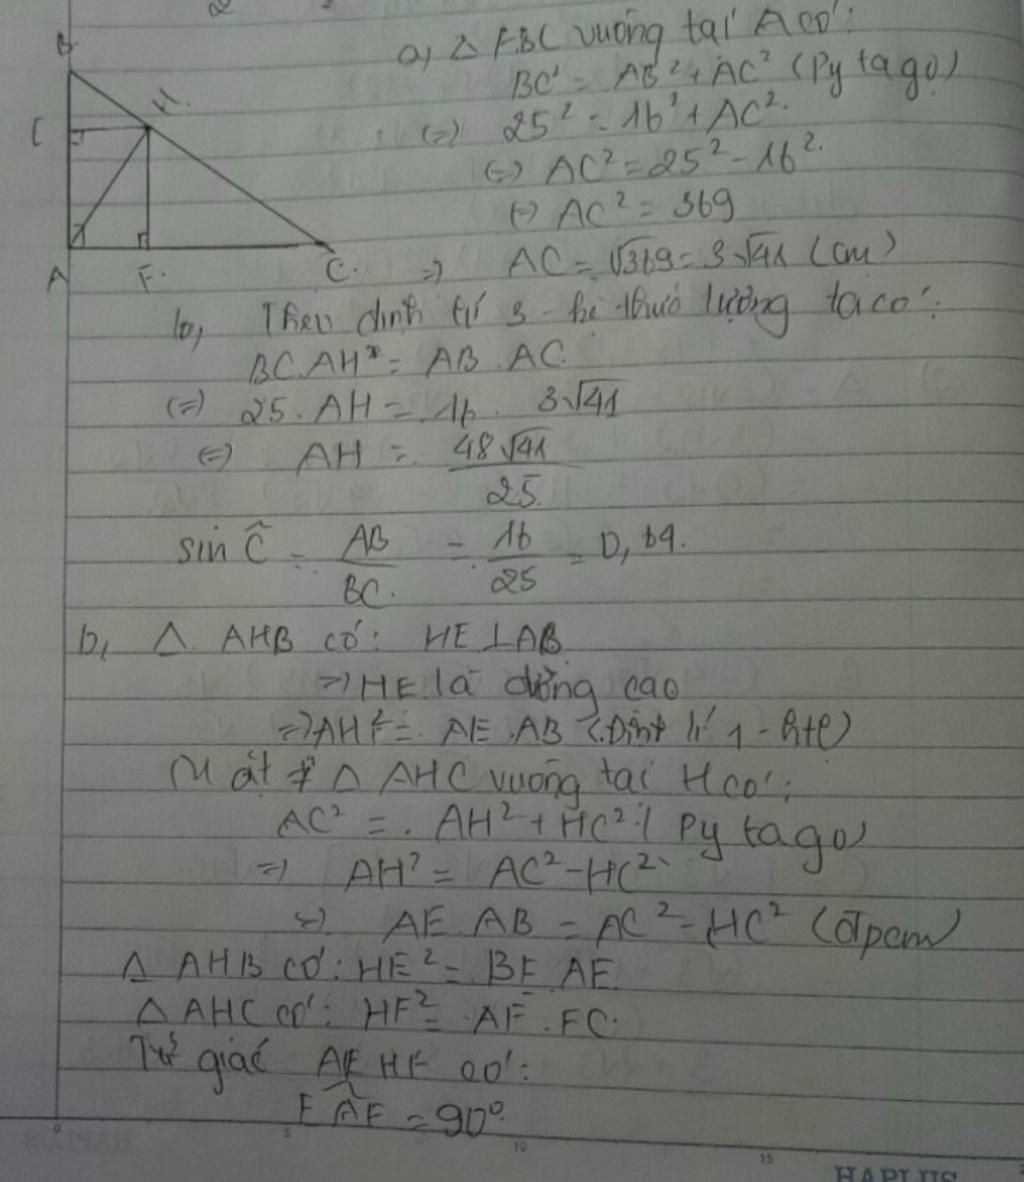 B
H
E
A
F
C
a, △ ABC vuông tại A có:
BC² = AB² + AC² (Pytago)
(=) 25² = 16² + AC²
(=) AC² = 25² - 16²
(=) AC² = 369
=) AC = √369 = 3√41 (cm)
b, Theo định lí 3 - hệ thức lượng ta có:
BC.AH = AB . AC
(=) 25. AH = 16. 3√41
(=) AH = 48√41 / 25
sin Ĉ = AB / BC = 16 / 25 = 0,64.
b, △ AHB có: HE ⊥ AB
=) HE là đường cao
=) AH² = AE . AB (Định lí 1 - htl)
Mặt ≠ △ AHC vuông tại H có:
AC² = AH² + HC² (Pytago)
=) AH² = AC² - HC²
(=) AE AB = AC² - HC² (đpcm)
△ AHB có: HE² = BE AE
△ AHC có: HF² = AF . FC
Tứ giác AEHF có:
EAF = 90°
5
10
15
HAPLUS